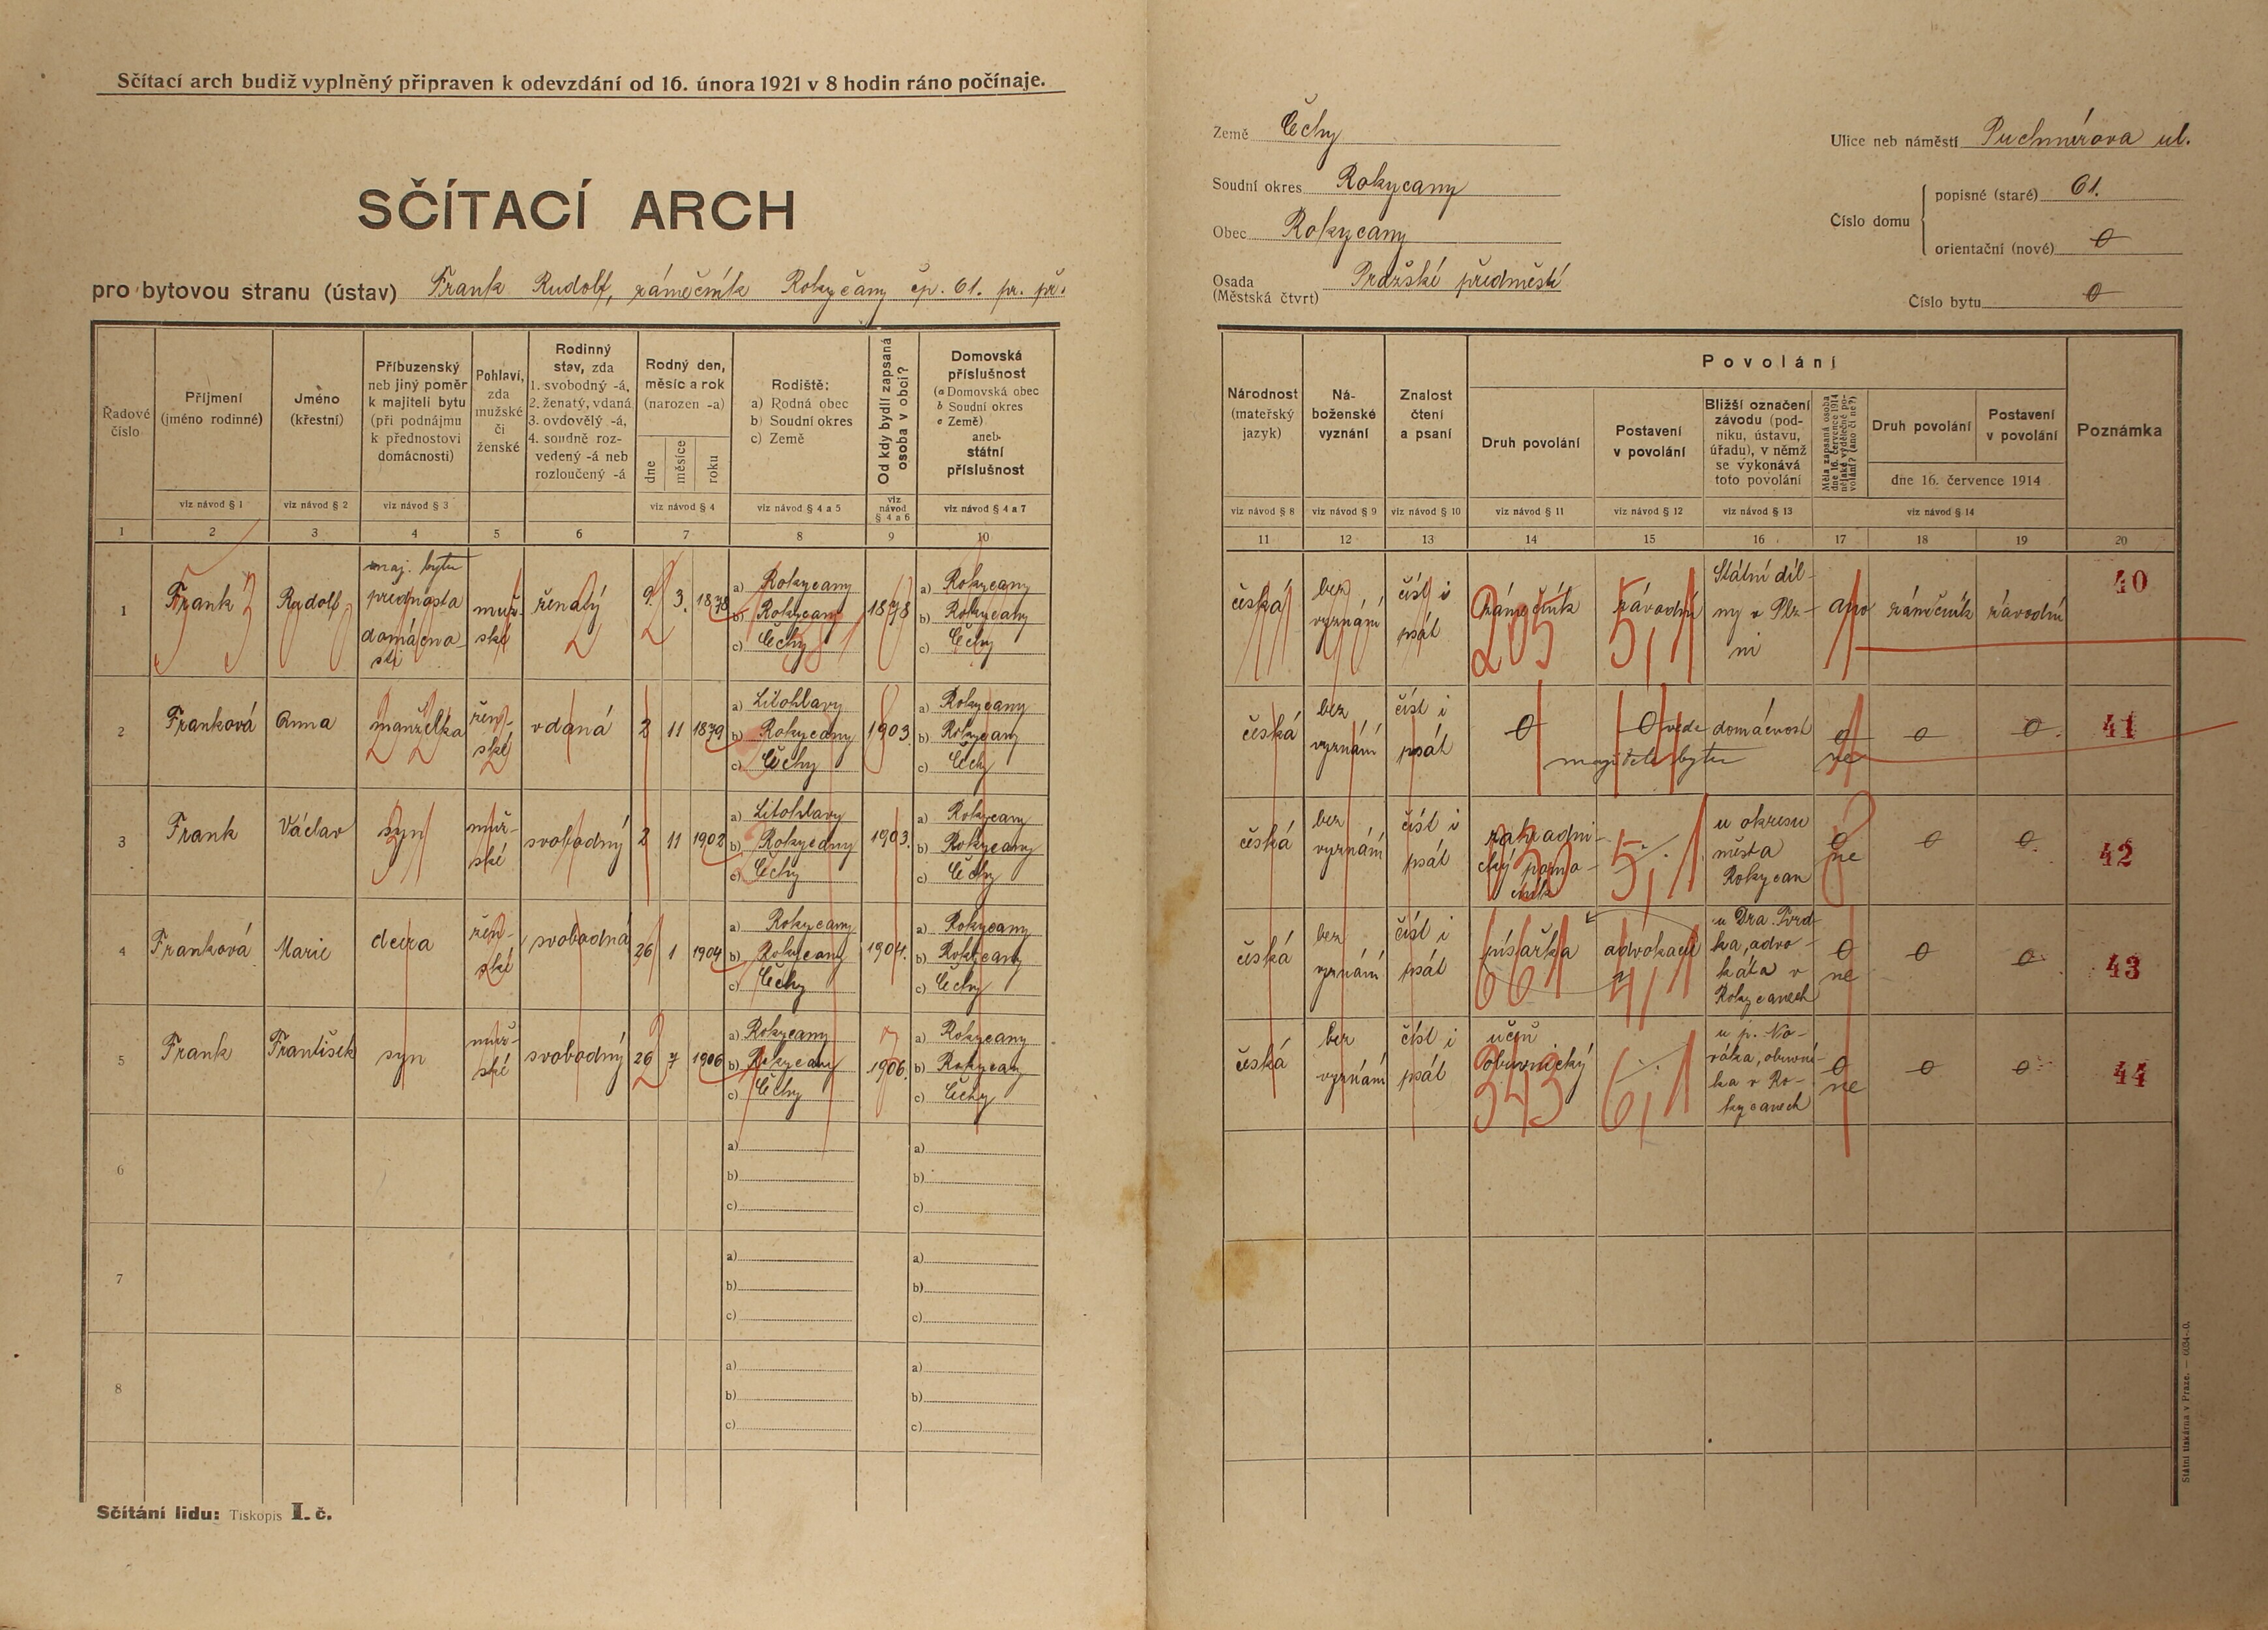 Sčítací arch budiž vyplněný připraven k odevzdání od 16. února 1921 v 8 hodin ráno počínaje.
SČÍTACÍ ARCH
pro bytovou stranu (ústav) Frank Rudolf, zámečník Rokycany čp. 61. pr. př.
Řadové číslo
Příjmení (jméno rodinné)
Jméno (křestní)
Příbuzenský neb jiný poměr k majiteli bytu (při podnájmu k přednostovi domácnosti)
Pohlaví, zda mužské či ženské
Rodinný stav, zda 1. svobodný -á, 2. ženatý, vdaná 3. ovdovělý -á, 4. soudně rozvedený -á neb rozloučený -á
Rodný den, měsíc a rok (narozen -a)
dne měsíce roku
Rodiště: a) Rodná obec b) Soudní okres c) Země
Od kdy bydlí zapsaná osoba v obci?
Domovská příslušnost (a Domovská obec b Soudní okres c Země) aneb státní příslušnost
viz návod § 1 viz návod § 2 viz návod § 3 viz návod § 4 viz návod § 4 a 5 viz návod § 4 a 6 viz návod § 4 a 7
1 2 3 4 5 6 7 8 9 10
1 Frank Rudolf maj. bytu přednosta domácnosti mužské ženatý 9. 3. 1878 a) Rokycany b) Rokycany c) Čechy 1878 a) Rokycany b) Rokycany c) Čechy
2 Franková Anna manželka ženské vdaná 2 11 1879 a) Litohlavy b) Rokycany c) Čechy 1903. a) Rokycany b) Rokycany c) Čechy
3 Frank Václav syn mužské svobodný 2 11 1902 a) Litohlavy b) Rokycany c) Čechy 1903. a) Rokycany b) Rokycany c) Čechy
4 Franková Marie dcera ženské svobodná 26 1 1904 a) Rokycany b) Rokycany c) Čechy 1904. a) Rokycany b) Rokycany c) Čechy
5 Frank František syn mužské svobodný 26 7 1906 a) Rokycany b) Rokycany c) Čechy 1906. a) Rokycany b) Rokycany c) Čechy
6 a) b) c) a) b) c)
7 a) b) c) a) b) c)
8 a) b) c) a) b) c)
Sčítání lidu: Tiskopis I. č.
Země Čechy
Soudní okres Rokycany
Obec Rokycany
Osada (Městská čtvrt) Pražské předměstí
Ulice neb náměstí Puchmírova ul.
Číslo domu
popisné (staré) 61.
orientační (nové) 0
Číslo bytu 0
Národnost (mateřský jazyk)
Náboženské vyznání
Znalost čtení a psaní
Povolání
Druh povolání
Postavení v povolání
Bližší označení závodu (podniku, ústavu, úřadu), v němž se vykonává toto povolání
Měla zapsaná osoba dne 16. července 1914 nějaké výdělečné povolání? (ano či ne?)
Druh povolání
Postavení v povolání
dne 16. července 1914
Poznámka
viz návod § 8 viz návod § 9 viz návod § 10 viz návod § 11 viz návod § 12 viz návod § 13 viz návod § 14
11 12 13 14 15 16 17 18 19 20
česká bez vyznání číst i psát zámečník 205 závodní 5,1 Státní dílny v Plzni ano zámečník závodní 40
česká bez vyznání číst i psát 0 0 vede domácnost majitele bytu 0 ne 0 0 41
česká bez vyznání číst i psát zahradnický pomocník 5,1 u okresu města Rokycan 0 ne 0 0 42
česká bez vyznání číst i psát písařka 661 advokacie 4,1 u Dra. advokáta v Rokycanech 0 ne 0 0 43
česká bez vyznání číst i psát učeň obuvnický 343 6,1 u p. Nováka, obuvníka v Rokycanech 0 ne 0 0 44
Státní tiskárna v Praze.